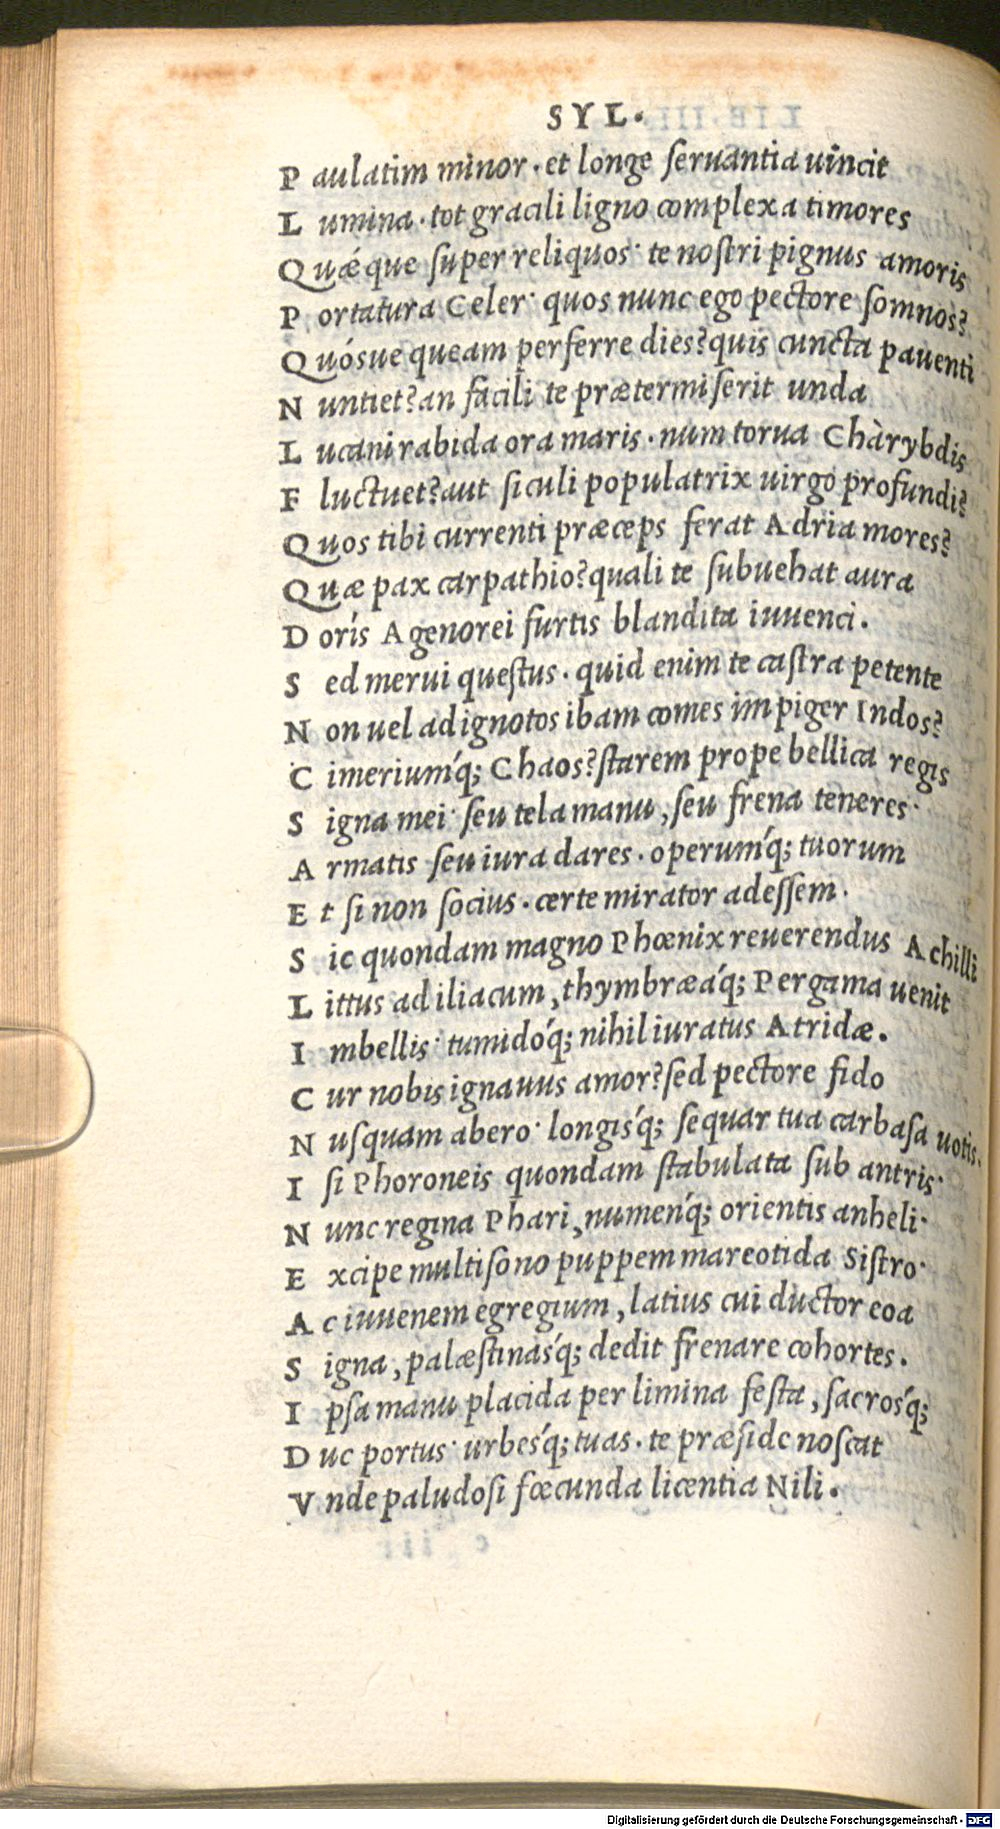 SYL.
Paulatim minor · et longe seruantia uincit
Lumina · tot gracili ligno complexa timores
Quǽque super reliquos· te nostri pignus amoris
Portatura Celer· quos nunc ego pectore somnos?
Quósue queam perferre dies? quis cuncta pauenti
Nuntiet? an facili te prætermiserit unda
Lucani rabida ora maris · num torua Chàrybdis
Fluctuet? aut siculi populatrix uirgo profundi?
Quos tibi currenti præceps ferat Adria mores?
Quæ pax carpathio? quali te subuehat aura
Dorís Agenorei furtis blandita iuuenci.
Sed merui questus · quid enim te castra petente
Non uel ad ignotos ibam comes impiger Indos?
Cimeriumq́; Chaos? starem prope bellica regis
Signa mei· seu tela manu, seu frena teneres·
Armatis seu iura dares · operumq́; tuorum
Et si non socius · certe mirator adessem·
Sic quondam magno Phœnix reuerendus Achilli
Littus ad iliacum, thymbræáq; Pergama uenit
Imbellis· tumidóq; nihil iuratus Atridæ.
Cur nobis ignauus amor? sed pectore fido
Nusquam abero· longisq́; sequar tua carbasa uotis.
Isi Phoroneis quondam stabulata sub antris·
Nunc regina Phari, numenq́; orientis anheli·
Excipe multisono puppem mareotida Sistro·
Ac iuuenem egregium, latius cui ductor eoa
Signa, palæstinasq́; dedit frenare cohortes.
Ipsa manu placida per limina festa, sacrosq́;
Duc portus· urbesq́; tuas · te præside noscat
Vnde paludosi fœcunda licentia Nili.
Digitalisierung gefördert durch die Deutsche Forschungsgemeinschaft - DFG